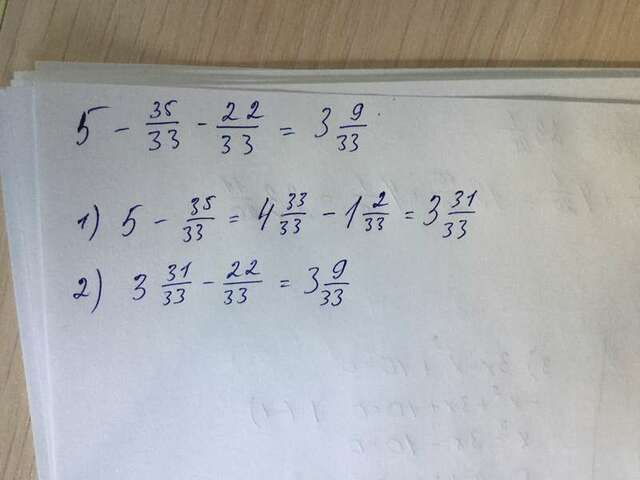 5 - 35/33 - 22/33 = 3 9/33
1) 5 - 35/33 = 4 33/33 - 1 2/33 = 3 31/33
2) 3 31/33 - 22/33 = 3 9/33